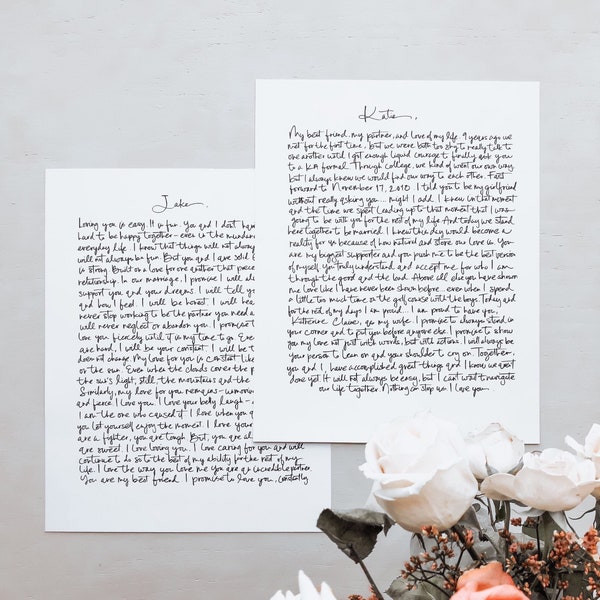 Jake.
Loving you is easy. It is fun. You and I don't hav
hard to be happy together - even in the mundan
everyday life. I know that things will not always
will not always be fun. But you and I are solid. O
is strong. Built on a love for one another that
relationship. In our marriage, I promise I will al
support you and your dreams. I will tell yo
and how I feel. I will be honest. I will hea
never stop working to be the partner you need a
will never neglect or abandon you. I promise t
love you fiercely until it is my time to go. Eve
are hard, I will be your constant. I will be t
does not change. My love for you is constant like
or the sun. Even when the clouds cover the p
the sun's light, still, the mountains and the
Similarly, my love for you remains - unmov
and fierce. I love you. I love your belly laugh -
I am the one who caused it. I love when you
you let yourself enjoy the moment. I love your
are a fighter, you are tough. But, you are al
are sweet. I love loving you. I love caring for you and will
continue to do so to the best of my ability for the rest of my
life. I love the way you love me. You are an incredible partner.
You are my best friend. I promise to love you, constantly.
Katie.
My best friend, my partner, and love of my life. 9 years ago we
met for the first time, but we were both too shy to really talk to
one another until I got enough liquid courage to finally ask you
to a KA formal. Through college, we kind of went our own way
but I always knew we would find our way to each other. Fast
forward to November 17, 2018. I told you to be my girlfriend
without really asking you... might I add. I knew in that moment
and the time we spent leading up to that moment that I was
going to be with you for the rest of my life. And today we stand
here together to be married. I knew this day would become a
reality for us because of how natural and sure our love is. You
are my biggest supporter and you push me to be the best version
of myself. You truly understand and accept me for who I am
through the good and the bad. Above all else you have shown
me love like I have never been shown before... even when I spend
a little too much time on the golf course with the boys. Today and
for the rest of my days I am proud... I am proud to have you,
Katherine as my wife. I promise to always stand in
your corner and to put you before anyone else. I promise to show
you my love not just with words, but with actions. I will always be
your person to lean on and your shoulder to cry on. Together,
you and I have accomplished great things and I know we aren't
done yet. It will not always be easy, but I can't wait to navigate
our life together. Nothing can stop us. I love you.